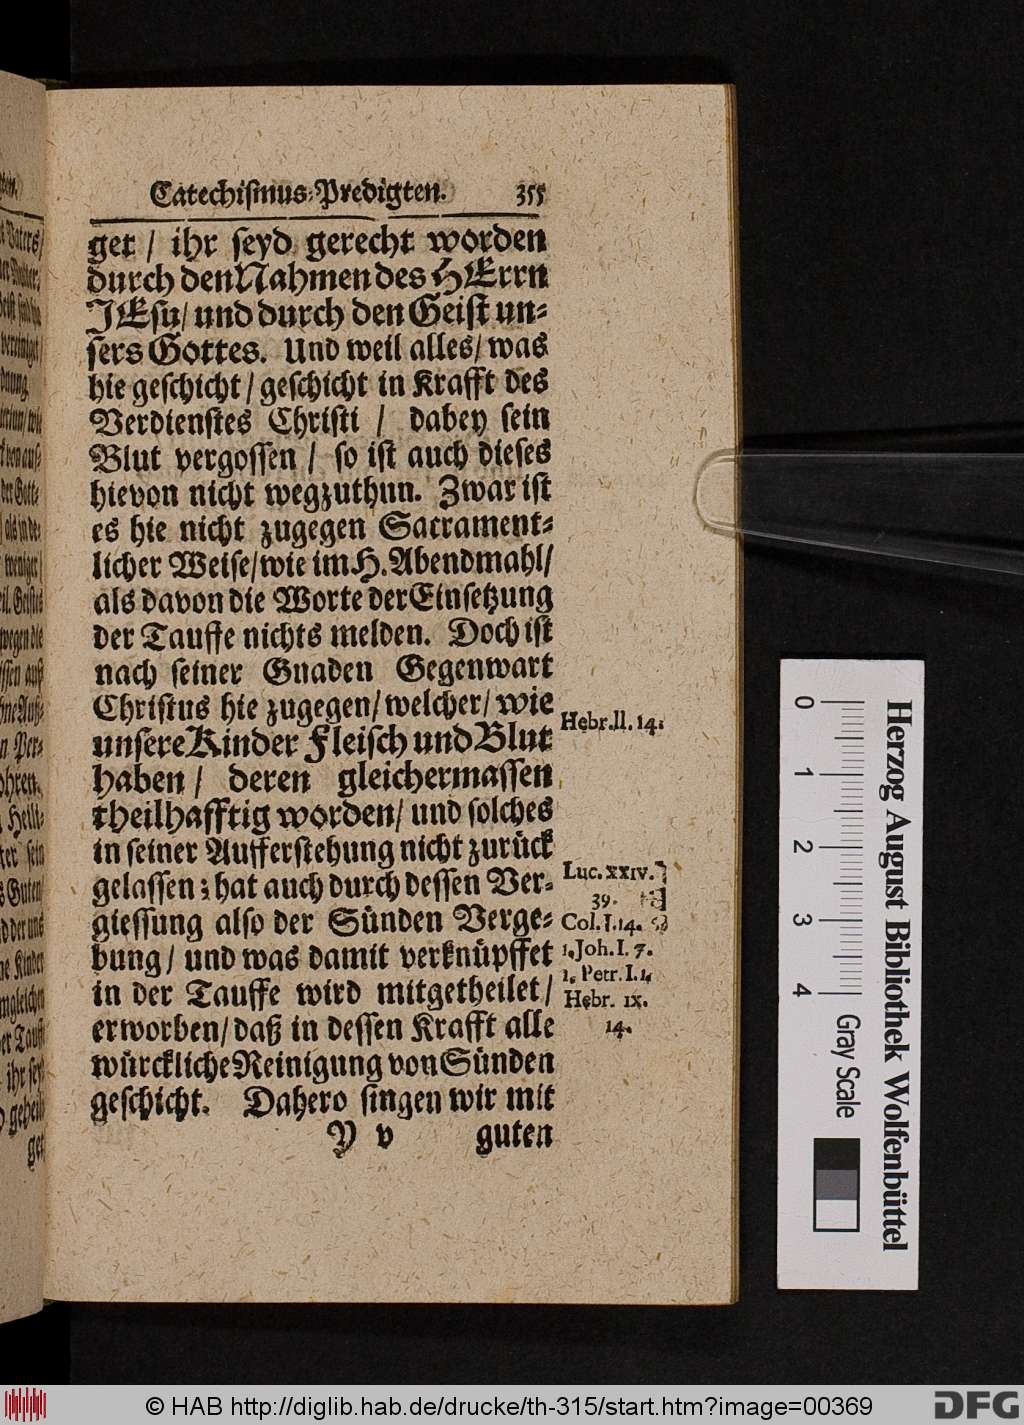 Catechismus-Predigten. 355
get / ihr seyd gerecht worden
durch den Nahmen des HErrn
JEsu / und durch den Geist un-
sers Gottes. Und weil alles / was
hie geschicht / geschicht in Krafft des
Verdienstes Christi / dabey sein
Blut vergossen / so ist auch dieses
hievon nicht wegzuthun. Zwar ist
es hie nicht zugegen Sacrament-
licher Weise / wie im H. Abendmahl /
als davon die Worte der Einsetzung
der Tauffe nichts melden. Doch ist
nach seiner Gnaden Gegenwart
Christus hie zugegen / welcher / wie
unsere Kinder Fleisch und Blut
Hebr. II. 14.
haben / deren gleichermassen
theilhafftig worden / und solches
in seiner Aufferstehung nicht zurück
gelassen ; hat auch durch dessen Ver-
giessung also der Sünden Verge-
bung / und was damit verknüpffet
in der Tauffe wird mitgetheilet /
erworben / daß in dessen Krafft alle
würckliche Reinigung von Sünden
geschicht. Dahero singen wir mit
Luc. XXIV.
39.
Col. I. 14.
1. Joh. I. 7.
1. Petr. I. 1.
Hebr. IX.
14.
Y v guten
Herzog August Bibliothek Wolfenbüttel
0 1 2 3 4 Gray Scale
© HAB http://diglib.hab.de/drucke/th-315/start.htm?image=00369
DFG